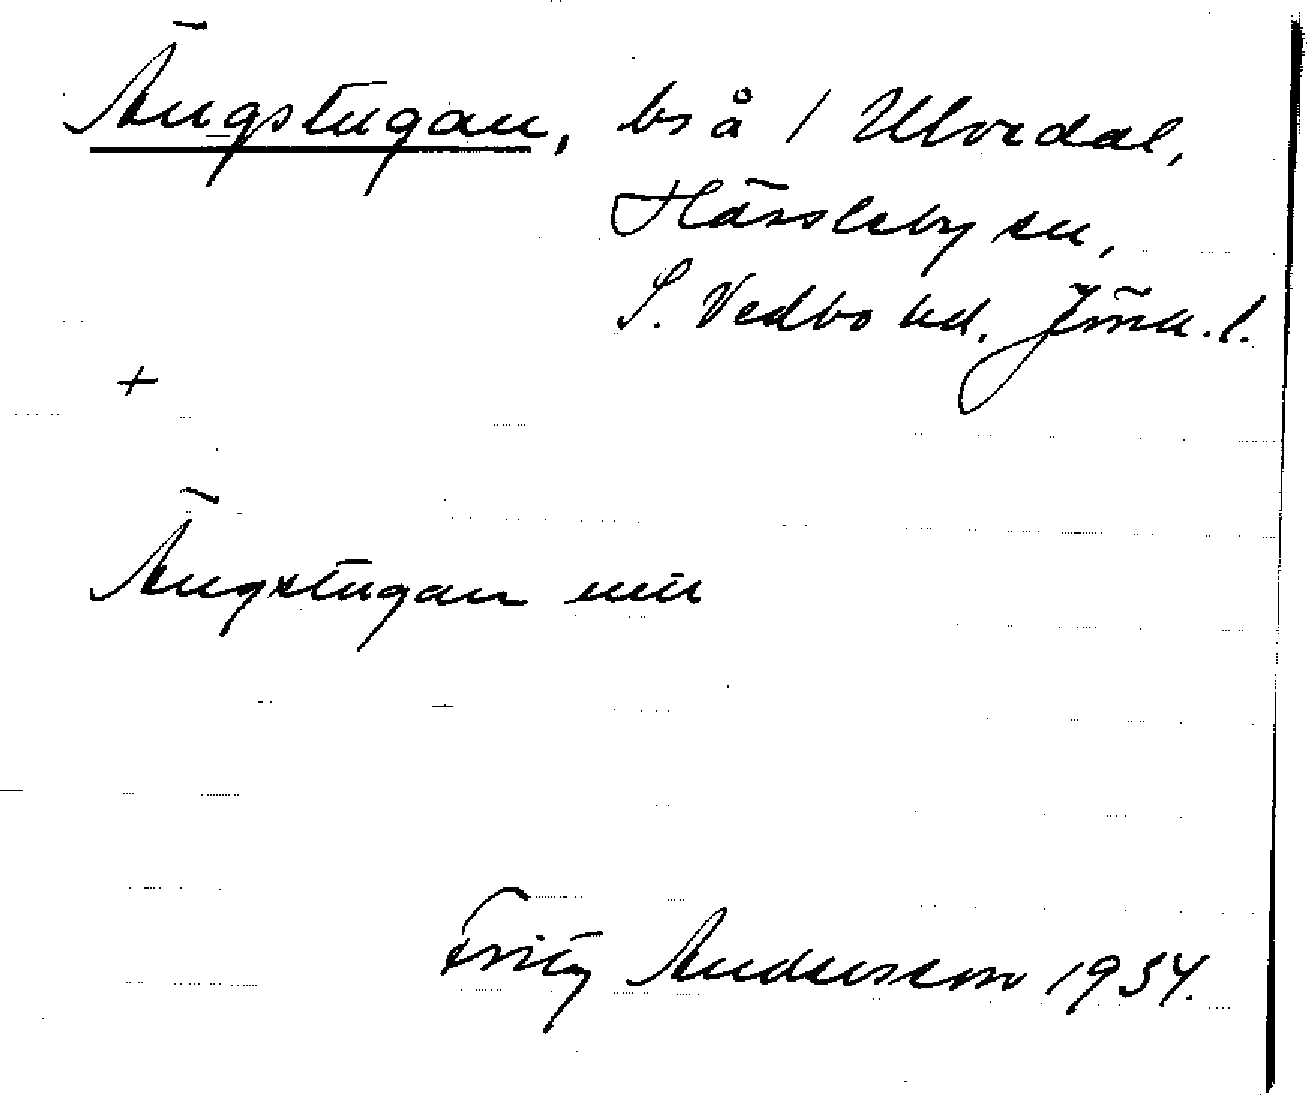 Ängstugan, bs å / Ulvedal,
Hässleby sn,
S. Vedbo hd. Jönk. l.
+
Ängstugan
Fritz Andersson 1934.